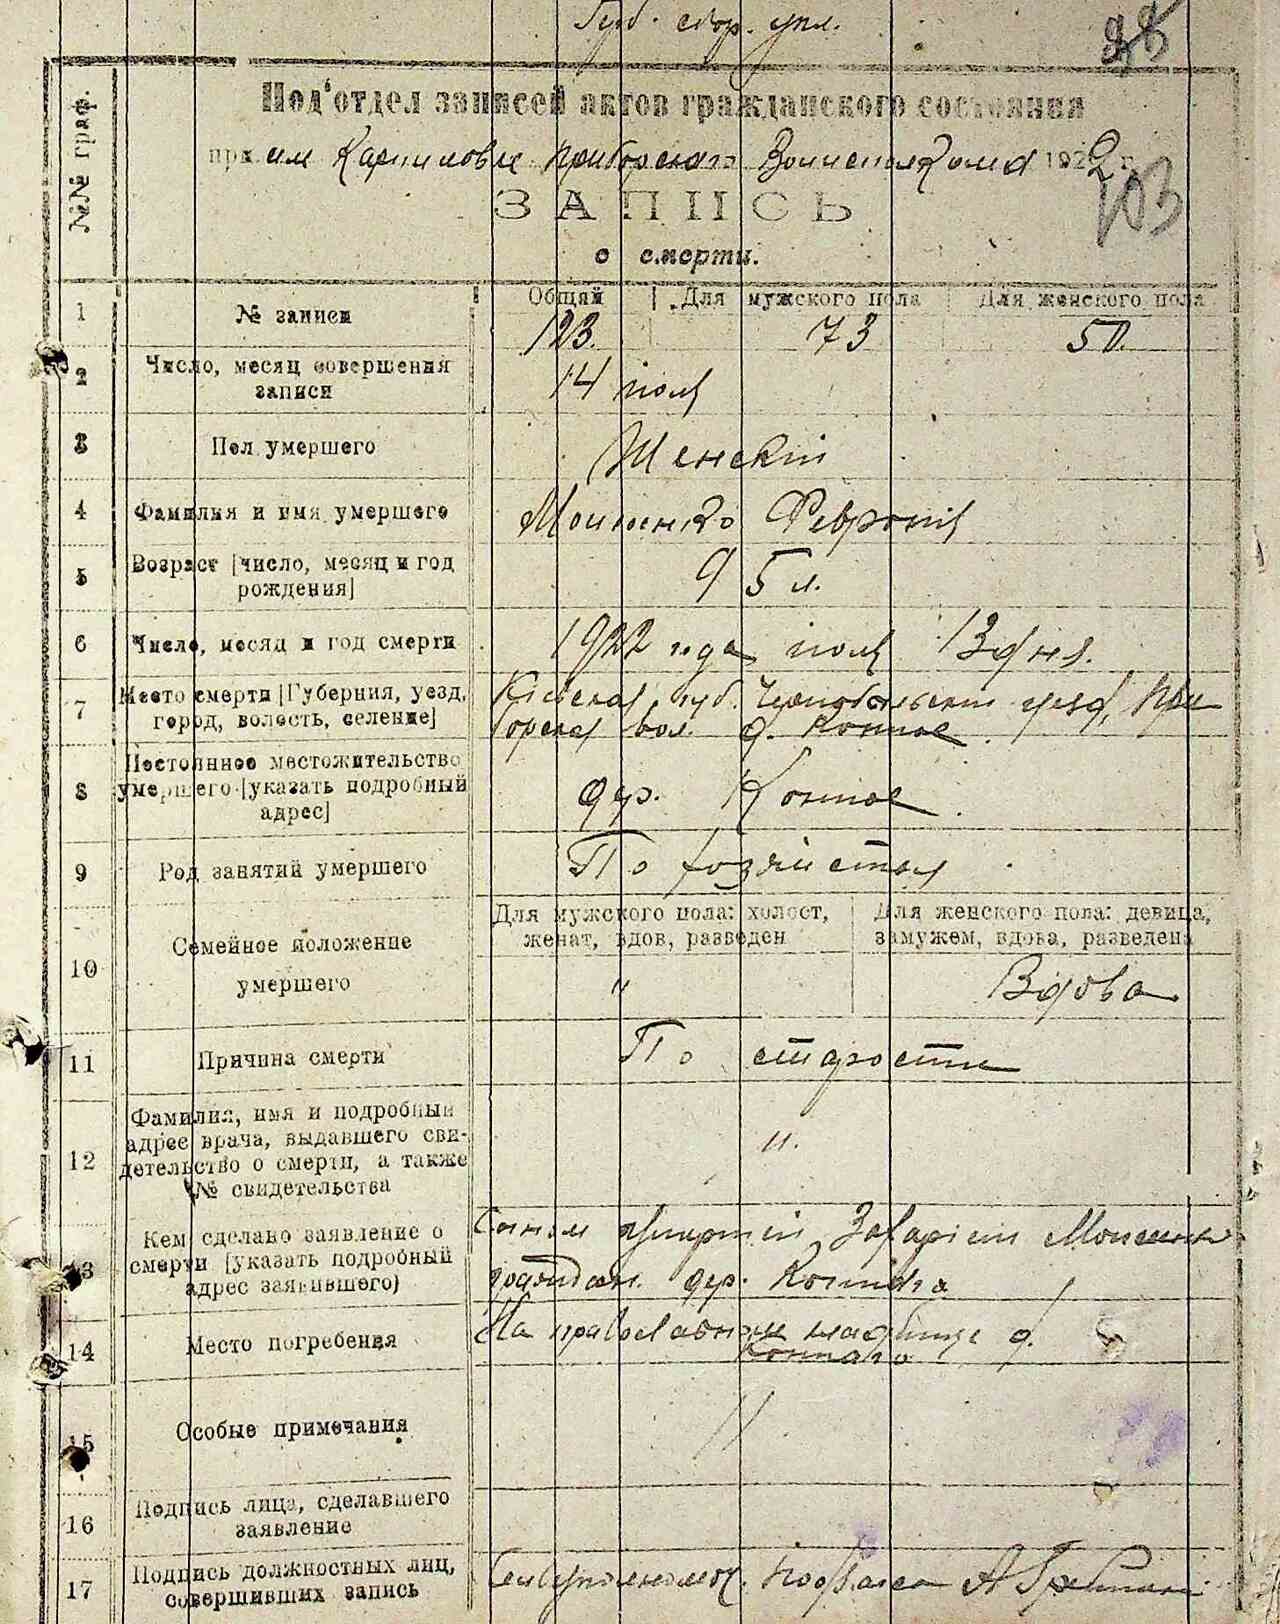 38
№№ граф.
Под'отдел записей актов гражданского состояния
при Приборского 1922 г.
103
ЗАПИСЬ
о смерти.
Общий Для мужского пола Для женского пола
1 № записи 123. 73 50.
2 Число, месяц совершения
записи 14 июля
3 Пол умершего Женский
4 Фамилия и имя умершего Феврония
5 Возраст [число, месяц и год
рождения] 95 л.
6 Число, месяц и год смерти 1922 года июля 13 дня.
7 Место смерти [Губерния, уезд, Кіевская губ. уезд, При
город, волость, селение] борская вол. д.
8 Постоянное местожительство
умершего [указать подробный дер.
адрес]
9 Род занятий умершего По
Для мужского пола: холост, Для женского пола: девица,
женат, вдов, разведен замужем, вдова, разведена
10 Семейное положение
умершего " Вдова
11 Причина смерти По старости
12 Фамилия, имя и подробный
адрес врача, выдавшего сви-
детельство о смерти, а также ".
№ свидетельства
13 Кем сделано заявление о Сыном умершей
смерти [указать подробный дер.
адрес заявившего)
14 Место погребения На православном кладбище д.
15 Особые примечания "
16 Подпись лица, сделавшего
заявление
17 Подпись должностных лиц,
совершивших запись